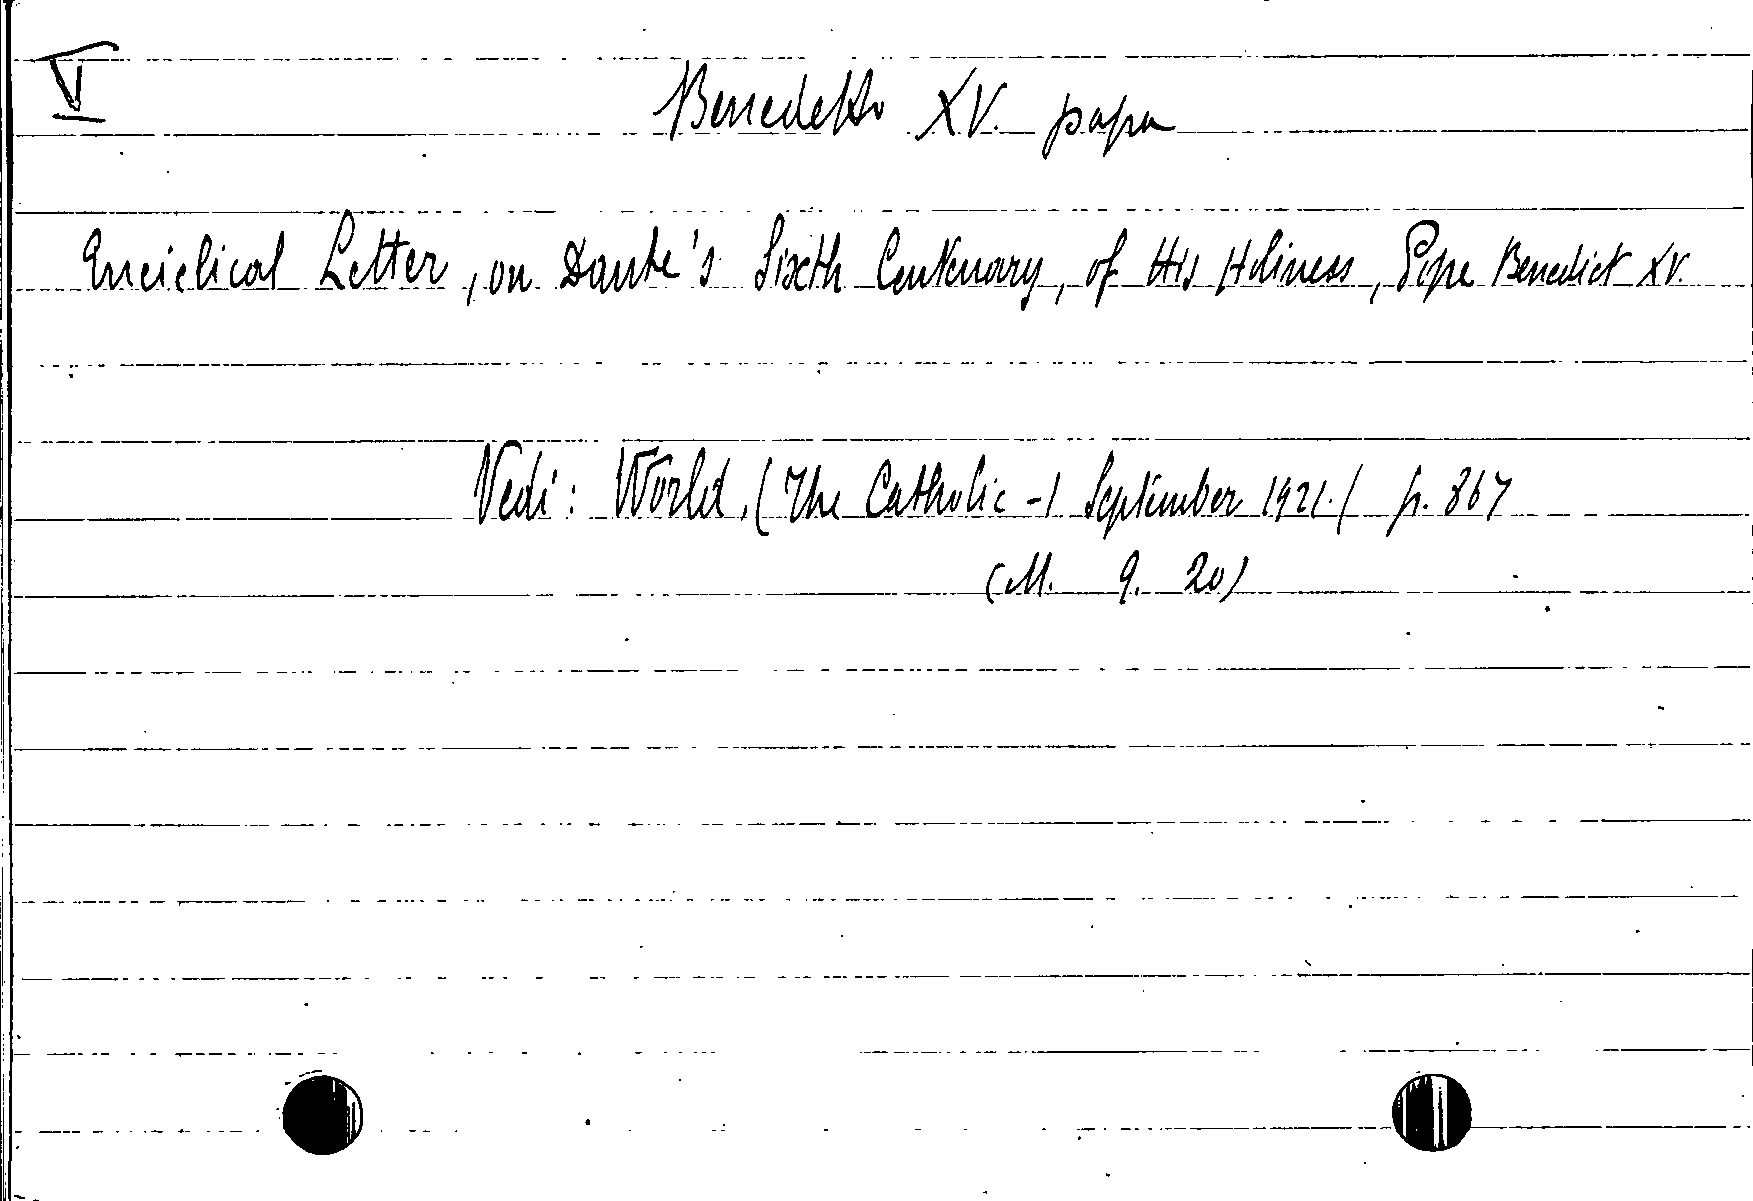 V
Benedetto XV. papa
Enciclical Letter, on Dante's Sixth Centenary, of His Holiness, Pope Benedict XV.
Vedi: World, (The Catholic -) September 1921.) p. 867
(M. 9. 20)